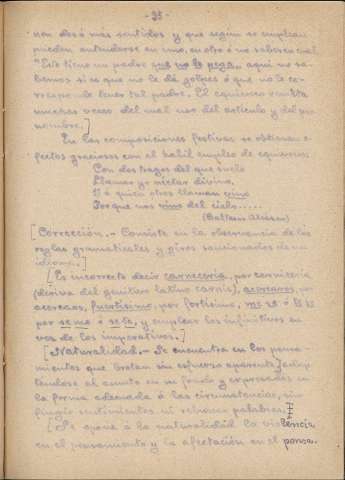 - 35 -
nen dos ó más sentidos y que según se emplean
pueden entenderse en uno, en otro ó no saberse cual
"Este tiene un padre que no le pega", aquí no sa-
bemos si es que no le dá golpes ó que no le co-
rresponde tener tal padre. El equívoco resulta
muchas veces del mal uso del artículo y del pro
nombre.]
En las composiciones festivas se obtienen e-
fectos graciosos con el hábil empleo de equívocos
Con dos tragos del que suelo
Llamar yo néctar divino,
Y á quien otros llaman vino
Porque nos vino del cielo.....
(Baltasar Alcázar)
[Corrección.- Consiste en la observancia de las
reglas gramaticales y giros sancionados de un
idioma.]
[Es incorrecto decir carnecería, por carnicería
(deriva del genitivo latino carnis),
acercaos, fuertísimo, por fortísimo,
por se me ó se te, y emplear los infinitivos en
vez de los imperativos.]
[Naturalidad.- Se encuentra en los pensa-
mientos que brotan sin esfuerzo aparente] adap
tándose al asunto en su fondo y expresados en
la forma adecuada á las circunstancias, sin
fingir sentimientos ni rebuscar palabras.
[Se opone á la naturalidad la violencia
en el pensamiento y la afectación en el